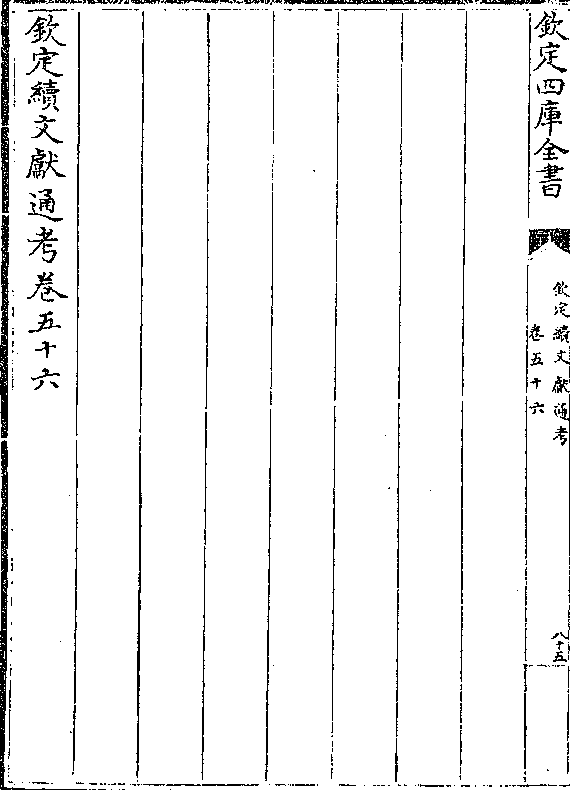 欽定四庫全書
欽定續文獻通考
卷五十六
八十五
欽定續文獻通考卷五十六